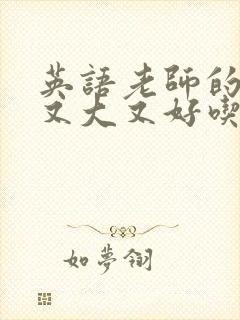 英語老師的
又大又好喫
如夢翎